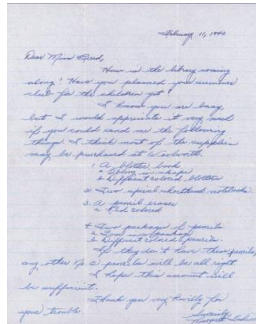 February 11, 1942
Dear Miss Breed,
How is the library coming
along? Have you planned your summer
club for the children yet?
I know you are busy,
but I would appreciate it very much
if you could send me the following
things. I think most of the supplies
may be purchased at Woolworth.
1. A blotter book
a.
b. Different colored blotters
2. Two spiral shorthand notebooks
3. A pencil eraser
a. Red colored
4. Two packages of pencils
a.
b. Different colored pencils
If they do not have these pencils,
any other No 2 pencils will be all right.
I hope this amount will
be sufficient.
Thank you very kindly for
your trouble.
Sincerely,
Margaret